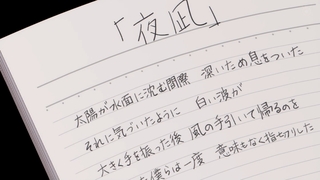 「夜凪」
太陽が水面に沈む間際 深いため息をついた
それに気づいたように 白い波が
大きく手を振った後 風の手引いて帰るのを
僕らは一度 意味もなく指切りした